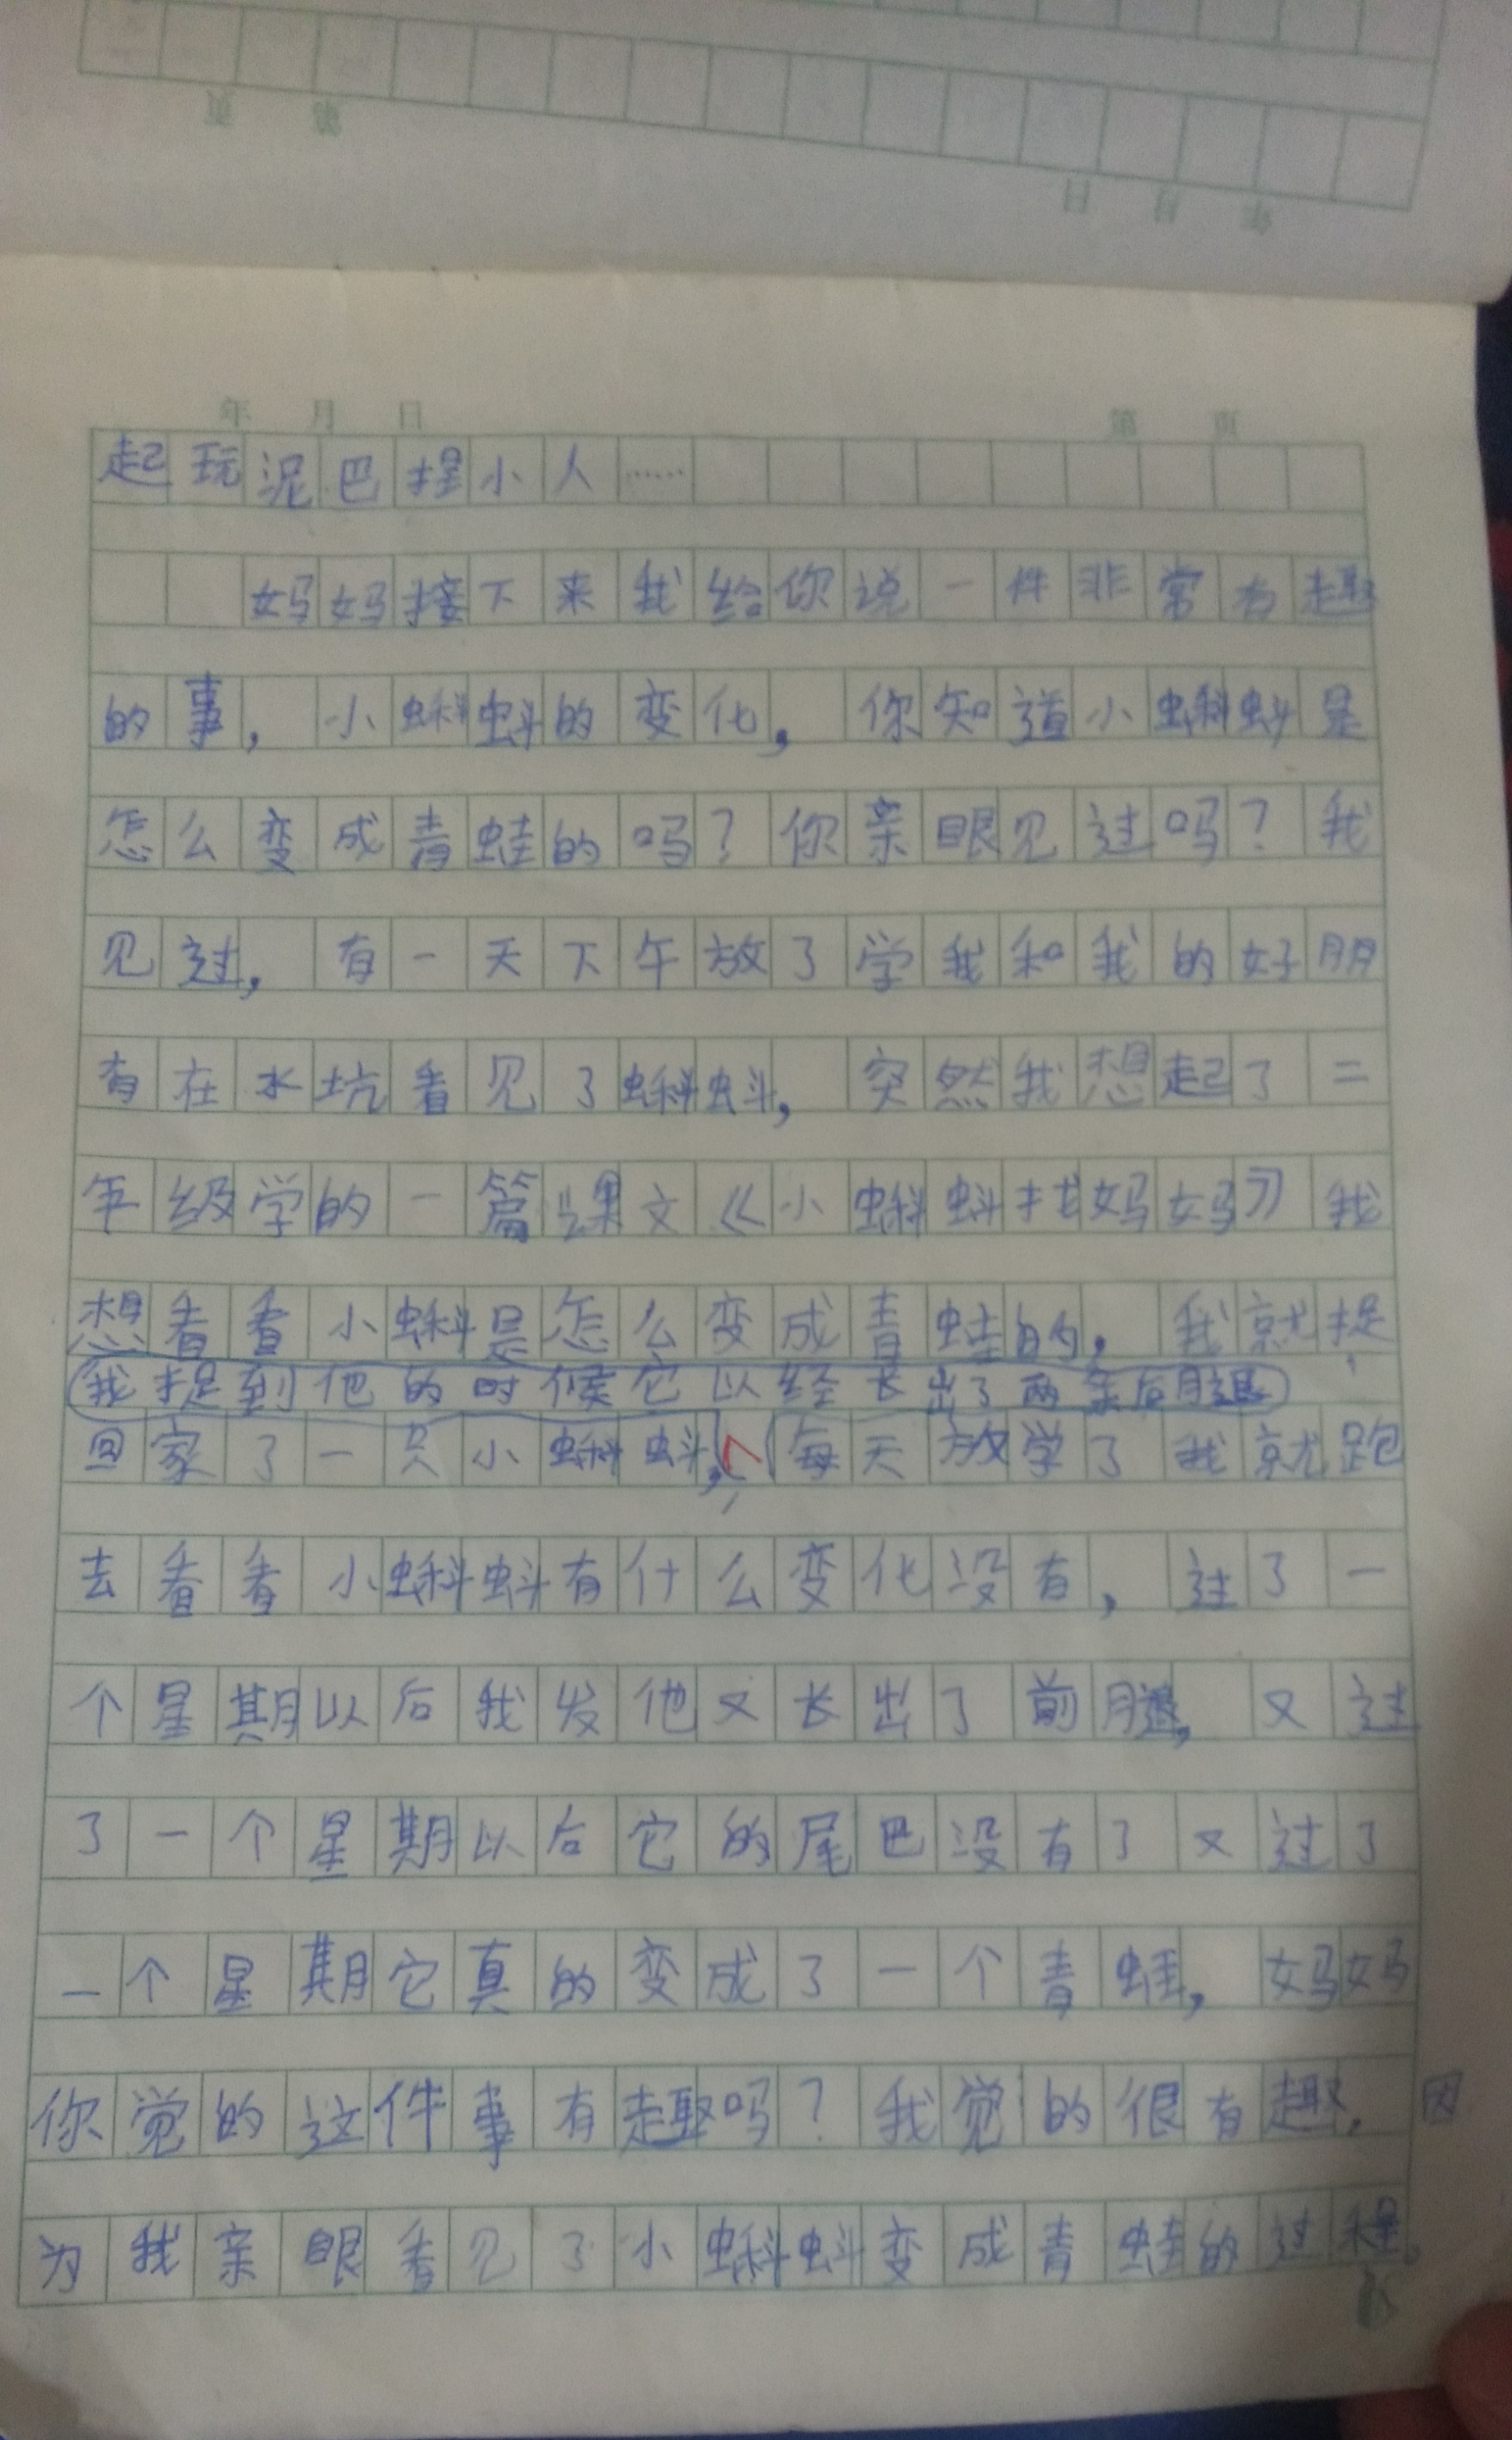 年 月 日 第 页
起玩泥巴捏小人……
妈妈接下来我给你说一件非常有趣
的事，小蝌蚪的变化，你知道小蝌蚪是
怎么变成青蛙的吗？你亲眼见过吗？我
见过，有一天下午放了学我和我的好朋
有在水坑看见了蝌蚪，突然我想起了二
年级学的一篇课文《小蝌蚪找妈妈》我
想看看小蝌是怎么变成青蛙的，我就捉
我捉到他的时候它以经长出了两条后腿
回家了一只小蝌蚪，每天放学了我就跑
去看看小蝌蚪有什么变化没有，过了一
个星期以后我发他又长出了前腿，又过
了一个星期以后它的尾巴没有了又过了
一个星期它真的变成了一个青蛙，妈妈
你觉的这件事有趣吗？我觉的很有趣，因
为我亲眼看见了小蝌蚪变成青蛙的过程。